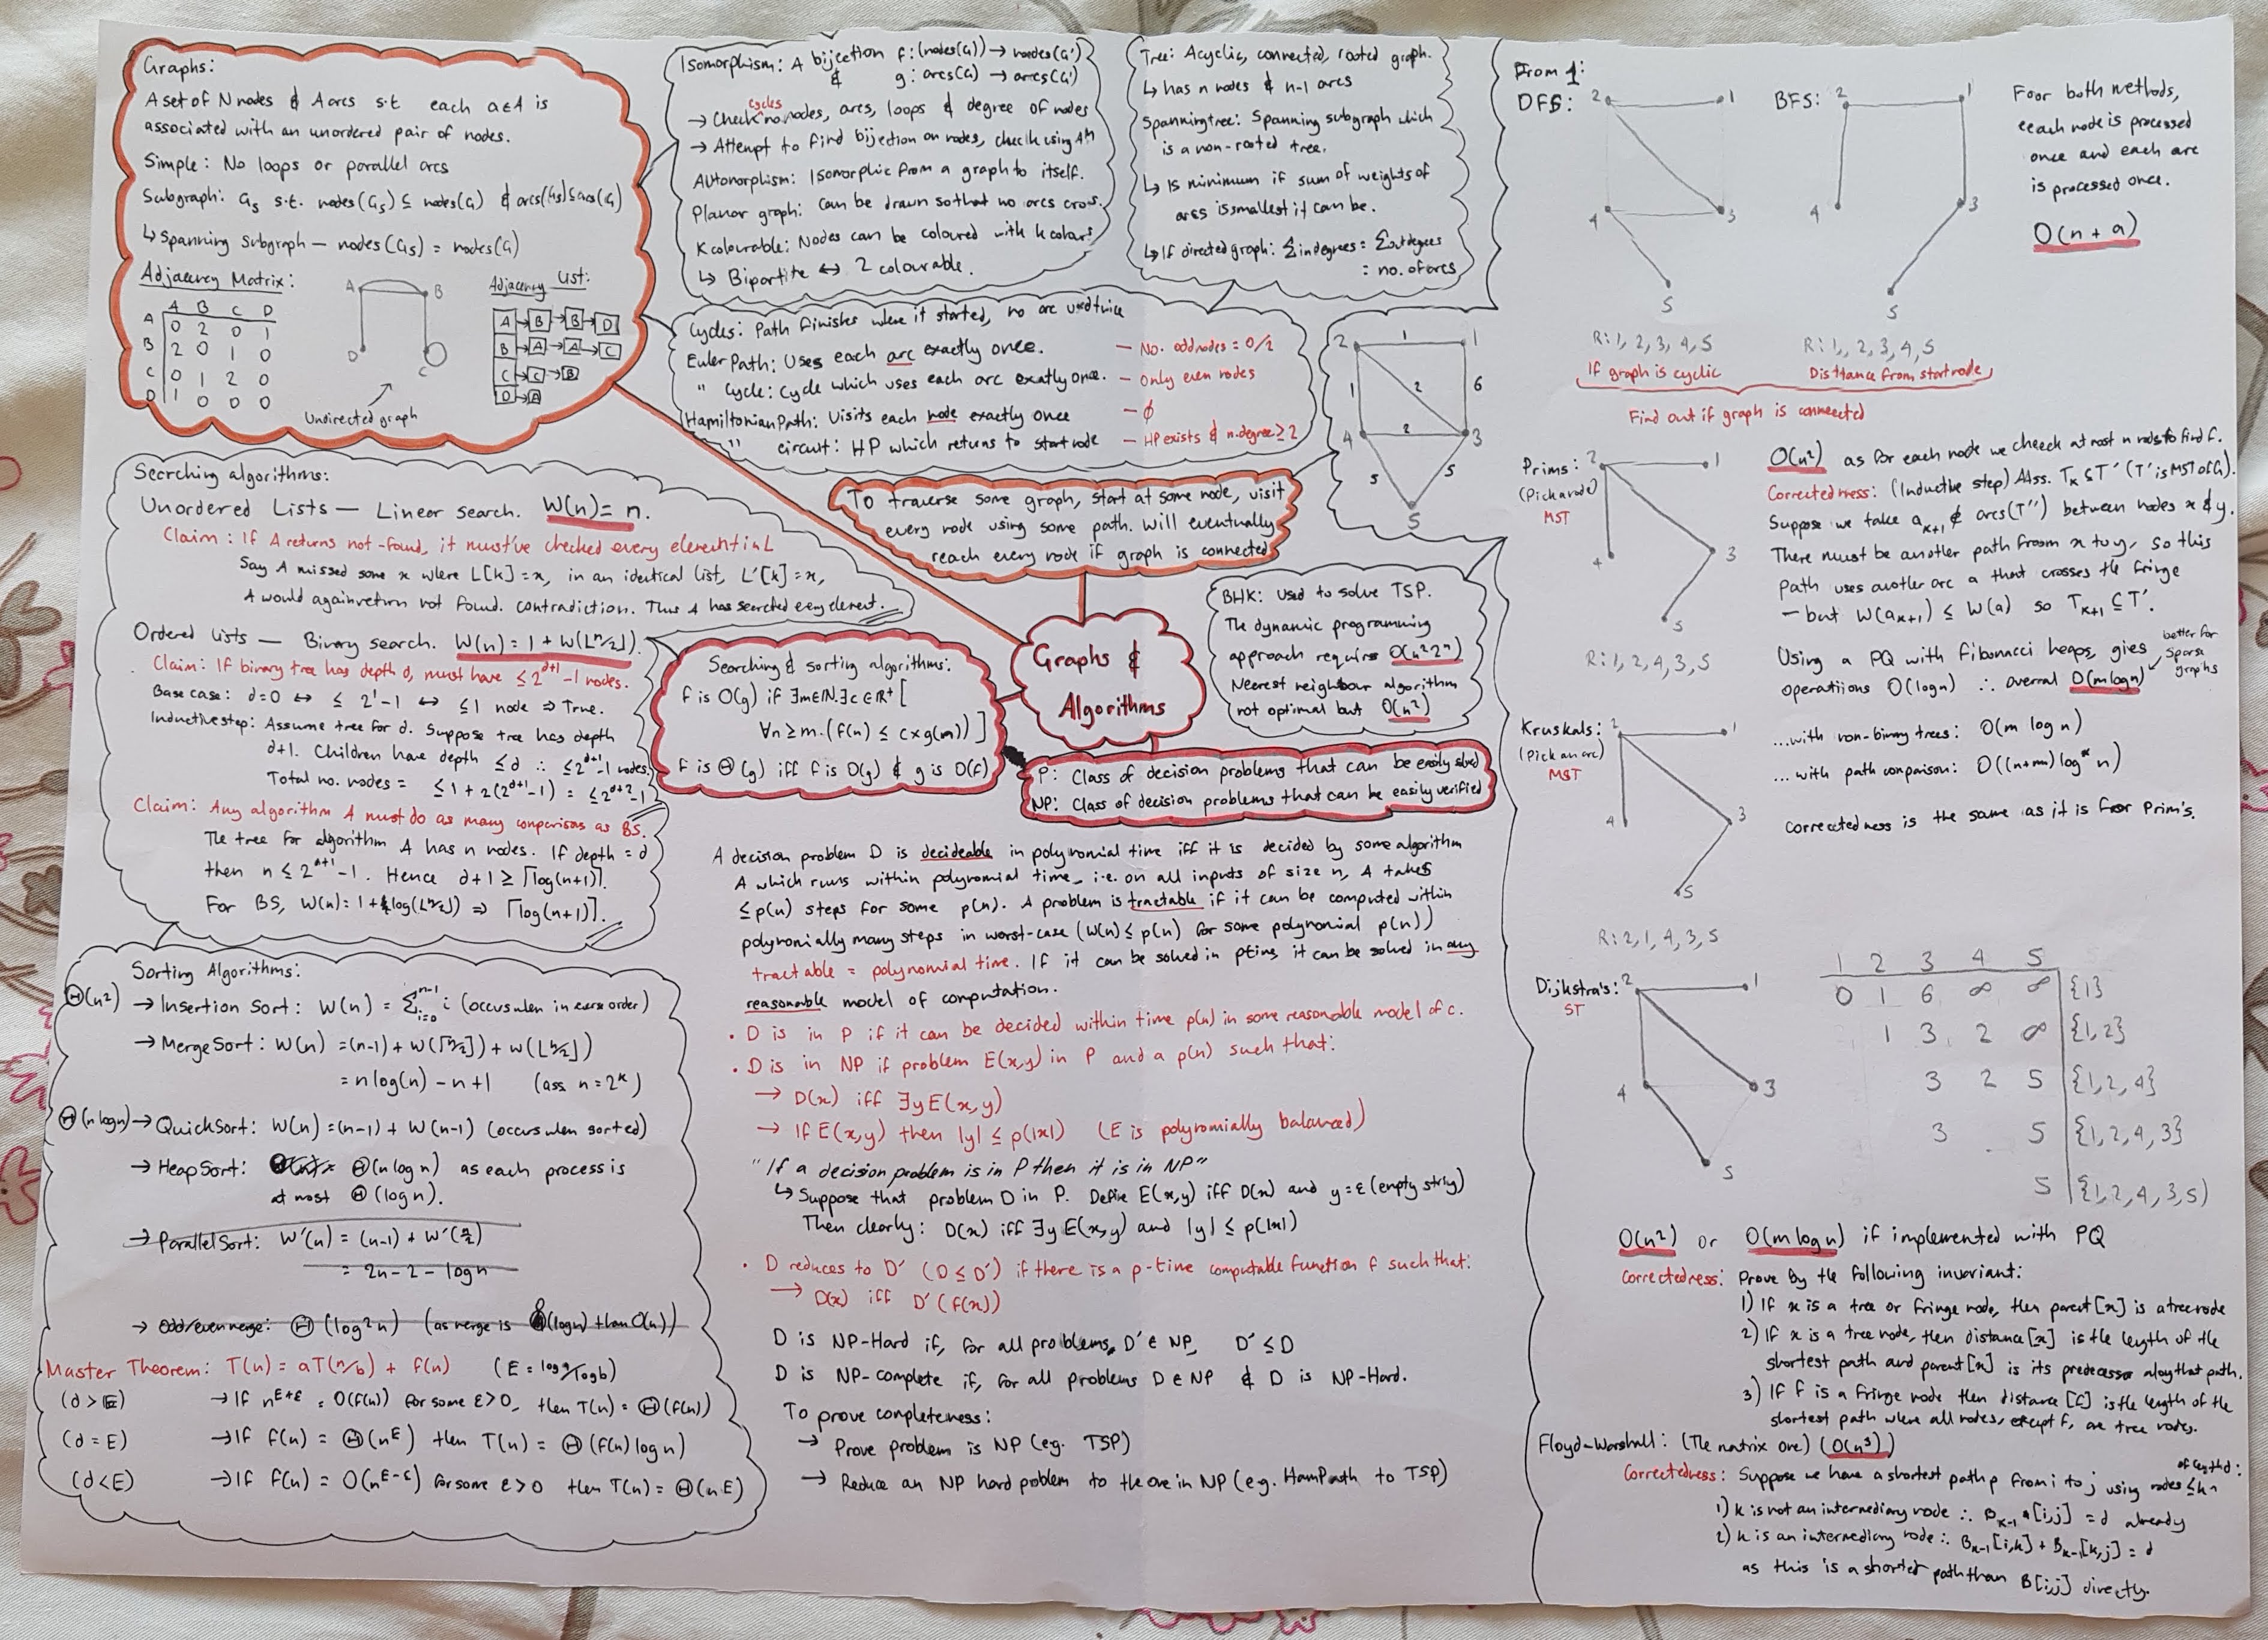 Graphs:
A set of N nodes & A arcs s.t each a∈A is
associated with an unordered pair of nodes.
Simple: No loops or parallel arcs
Subgraph: Gs s.t. nodes(Gs) ⊆ nodes(G) & arcs(Gs)⊆arcs(G)
↳ Spanning Subgraph — nodes(Gs) = nodes(G)
Adjacency Matrix:
A B C D
A 0 2 0 1
B 2 0 1 0
C 0 1 2 0
D 1 0 0 0
A B
D C
Undirected graph
Adjacency List:
A → B → B → D
B → A → A → C
C → C → B
D → A
Isomorphism: A bijection f:(nodes(G)) → nodes(G')
& g: arcs(G) → arcs(G')
cycles
→ Check no. nodes, arcs, loops & degree of nodes
→ Attempt to find bijection on nodes, check using AM
Automorphism: Isomorphic from a graph to itself.
Planar graph: Can be drawn so that no arcs cross.
K colourable: Nodes can be coloured with k colours
↳ Bipartite ↔ 2 colourable.
Tree: Acyclic, connected, rooted graph.
↳ has n nodes & n-1 arcs
Spanning tree: Spanning subgraph which
is a non-rooted tree.
↳ Is minimum if sum of weights of
arcs is smallest it can be.
↳ If directed graph: Σindegrees = Σoutdegrees
= no. of arcs
Cycles: Path finishes where it started, no arc used twice
Euler Path: Uses each arc exactly once. — No. odd nodes = 0/2
" Cycle: Cycle which uses each arc exatly once. — Only even nodes
Hamiltonian Path: Visits each node exactly once — ϕ
" circuit: HP which returns to start node — HP exists & n.degree ≥ 2
2 1 1
1 2 6
4 2 3
5 5
5
To traverse some graph, start at some node, visit
every node using some path. Will eventually
reach every node if graph is connected
Graphs &
Algorithms
BHK: Used to solve TSP.
The dynamic programming
approach requires O(n²2ⁿ)
Nearest neighbour algorithm
not optimal but O(n²)
Searching & sorting algorithms:
f is O(g) if ∃m∈ℕ.∃c∈ℝ⁺[
∀n≥m.(f(n) ≤ c×g(n))]
f is Θ(g) iff f is O(g) & g is O(f)
P: Class of decision problems that can be easily solved
NP: Class of decision problems that can be easily verified
Searching algorithms:
Unordered Lists — Linear search. W(n) = n.
Claim: If A returns not-found, it must've checked every element in L
Say A missed some x where L[k]=x, in an identical list, L'[k]=x,
A would again return not found. contradiction. Thus A has searched every element.
Ordered lists — Binary search. W(n) = 1 + W(⌊n/2⌋).
Claim: If binary tree has depth d, must have ≤ 2^(d+1) -1 nodes.
Base case: d=0 ↔ ≤ 2¹-1 ↔ ≤1 node ⇒ True.
Inductive step: Assume tree for d. Suppose tree has depth
d+1. Children have depth ≤ d ∴ ≤ 2^(d+1)-1 nodes.
Total no. nodes = ≤ 1 + 2(2^(d+1)-1) = ≤ 2^(d+2)-1
Claim: Any algorithm A must do as many comparisons as BS.
The tree for algorithm A has n nodes. If depth = d
then n ≤ 2^(d+1) -1. Hence d+1 ≥ ⌈log(n+1)⌉.
For BS, W(n) = 1+log(⌊n/2⌋) ⇒ ⌈log(n+1)⌉.
Sorting Algorithms:
Θ(n²) → Insertion Sort: W(n) = Σ_{i=0}^{n-1} i (occurs when in reverse order)
→ MergeSort: W(n) = (n-1) + W(⌈n/2⌉) + W(⌊n/2⌋)
= n log(n) - n + 1 (ass n=2ᵏ)
Θ(n logn) → QuickSort: W(n) = (n-1) + W(n-1) (occurs when sorted)
→ HeapSort: Θ(n log n) as each process is
at most Θ(log n).
→ ParallelSort: W'(n) = (n-1) + W'(n/2)
= 2n - 2 - log n
→ Odd/even merge: Θ(log²n) (as merge is (logn) than O(n))
Master Theorem: T(n) = aT(n/b) + f(n) (E = loga/logb)
(d > E) → If n^(E+ε) = O(f(n)) for some ε>0, then T(n) = Θ(f(n))
(d = E) → If f(n) = Θ(n^E) then T(n) = Θ(f(n) log n)
(d < E) → If f(n) = O(n^(E-ε)) for some ε>0 then T(n) = Θ(n^E)
A decision problem D is decideable in polynomial time iff it is decided by some algorithm
A which runs within polynomial time, i.e. on all inputs of size n, A takes
≤p(n) steps for some p(n). A problem is tractable if it can be computed within
polynomially many steps in worst-case (W(n) ≤ p(n) for some polynomial p(n))
tractable = polynomial time. If it can be solved in ptime, it can be solved in any
reasonable model of computation.
• D is in P if it can be decided within time p(n) in some reasonable model of c.
• D is in NP if problem E(x,y) in P and a p(n) such that:
→ D(x) iff ∃yE(x,y)
→ If E(x,y) then |y| ≤ p(|x|) (E is polynomially balanced)
"If a decision problem is in P then it is in NP"
↳ Suppose that problem D in P. Define E(x,y) iff D(x) and y=ε (empty string)
Then clearly: D(x) iff ∃y E(x,y) and |y| ≤ p(|x|)
• D reduces to D' (D ≤ D') if there is a p-time computable function f such that:
→ D(x) iff D'(f(x))
D is NP-Hard if, for all problems D' ∈ NP, D' ≤ D
D is NP-complete if, for all problems D ∈ NP & D is NP-Hard.
To prove completeness:
→ Prove problem is NP (eg. TSP)
→ Reduce an NP hard problem to the one in NP (eg. HamPath to TSP)
From 1:
DFS: 2 1
4 3
5
R: 1, 2, 3, 4, 5
If graph is cyclic
BFS: 2 1
4 3
5
R: 1, 2, 3, 4, 5
Distance from start node
Find out if graph is connected
Foor both methods,
each node is processed
once and each arc
is processed once.
O(n + a)
Prims: 2 1
(Pick a node)
MST
4 3
5
R: 1, 2, 4, 3, 5
O(n²) as for each node we check at most n nodes to find f.
Correctedness: (Inductive step) Ass. Tₖ ⊆ T' (T' is MST of G).
Suppose we take aₖ₊₁ ∉ arcs(T') between nodes x & y.
There must be another path from x to y, so this
path uses another arc a that crosses the fringe
— but W(aₖ₊₁) ≤ W(a) so Tₖ₊₁ ⊆ T'.
Using a PQ with Fibonacci heaps, gies
operations O(logn) ∴ overral O(m logn)
better for sparse graphs
Kruskals: 2 1
(Pick an arc)
MST
4 3
5
R: 2, 1, 4, 3, 5
...with non-binary trees: O(m log n)
...with path comparison: O((n+m) log* n)
Correctedness is the same as it is foor Prim's.
Dijkstra's: 2 1
ST
4 3
5
1 2 3 4 5
0 1 6 ∞ ∞ {1}
1 3 2 ∞ {1,2}
3 2 5 {1,2,4}
3 5 {1,2,4,3}
5 {1,2,4,3,5}
O(n²) or O(m log n) if implemented with PQ
Correctedness: Prove by the following invariant:
1) If x is a tree or fringe node, then parent[x] is a tree node
2) If x is a tree node, then distance[x] is the length of the
shortest path and parent[x] is its predecessor along that path.
3) If f is a fringe node then distance[f] is the length of the
shortest path where all nodes, except f, are tree nodes.
Floyd-Warshall: (The matrix one) (O(n³))
Correctedness: Suppose we have a shortest path p from i to j using nodes ≤k of length d:
1) k is not an intermediary node ∴ Bₖ₋₁[i,j] = d already
2) k is an intermediary node ∴ Bₖ₋₁[i,k] + Bₖ₋₁[k,j] = d
as this is a shorter path than B[i,j] directly.